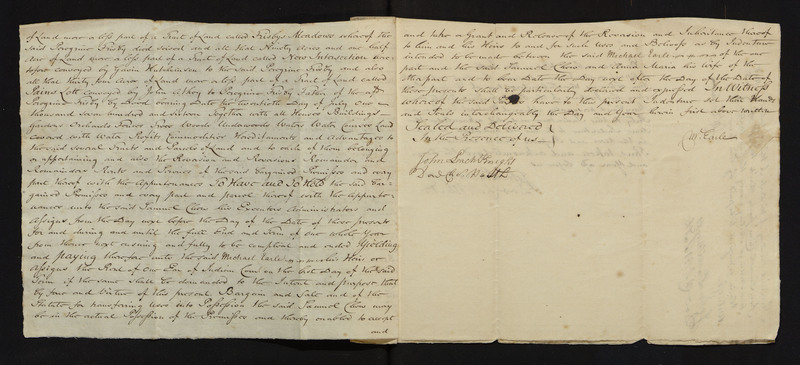 of Land more or less part of a Tract of Land called Frisbys Meadows whereof the
said Peregrine Frisby died seised and all that Ninety Acres and one half
Acre of Land more or less part of a Tract of Land called New Intersection here-
tofore conveyed by Gavin Hutcheson to the said Peregrine Frisby and also
all that thirty four Acres of Land more or less part of a Tract of Land called
Lott conveyed by John Ashby to Peregrine Frisby Father of the said
Peregrine Frisby by Deed bearing Date the twentieth Day of July One
thousand seven hundred and sixteen Together with all Houses Buildings
Gardens Orchards Fences Trees Woods Underwoods Waters Water Courses Land
covered with Water Profits Commodities Hereditaments and Advantages to
the said several Tracts and Parcels of Land and to each of them belonging
or appertaining and also the Reversion and Reversions Remainder and
Remainders Rents and Services of the said Bargained Premises and every
part thereof with the Appurtenances To Have and To Hold the said Bar-
gained Premises and every part and parcel thereof with the Appurte-
nances unto the said Samuel Chew his Executors Administrators and
Assigns from the Day next before the Day of the Date of these presents
for and during and until the full End and Term of one whole Year
from thence next ensuing and fully to be compleat and ended Yielding
and paying therefore unto the said Michael Earle his Heirs or
Assigns the Rent of One Ear of Indian Corn on the last Day of the said
Term if the same shall be demanded to the Intent and purpose that
by force and Virtue of this present Bargain and Sale and of the
Statute for transferring Uses into Possession the said Samuel Chew may
be in the actual Possession of the Premises and thereby enabled to accept
and
and take a Grant and Release of the Reversion and Inheritance thereof
to him and his Heirs to and for such Uses and Behoofs as by Indenture
intended to be made between the said Michael Earle of the one
part and the said Samuel Chew and Anna Maria his Wife of the
other part and to bear Date the Day next after the Day of the Date of
these presents shall be particularly declared and expressed In Witness
whereof the said Parties have to this present Indenture set their Hands
and Seals interchangeably the Day and Year herein first above written
Sealed and Delivered
In the Presence of us
M Earle
John